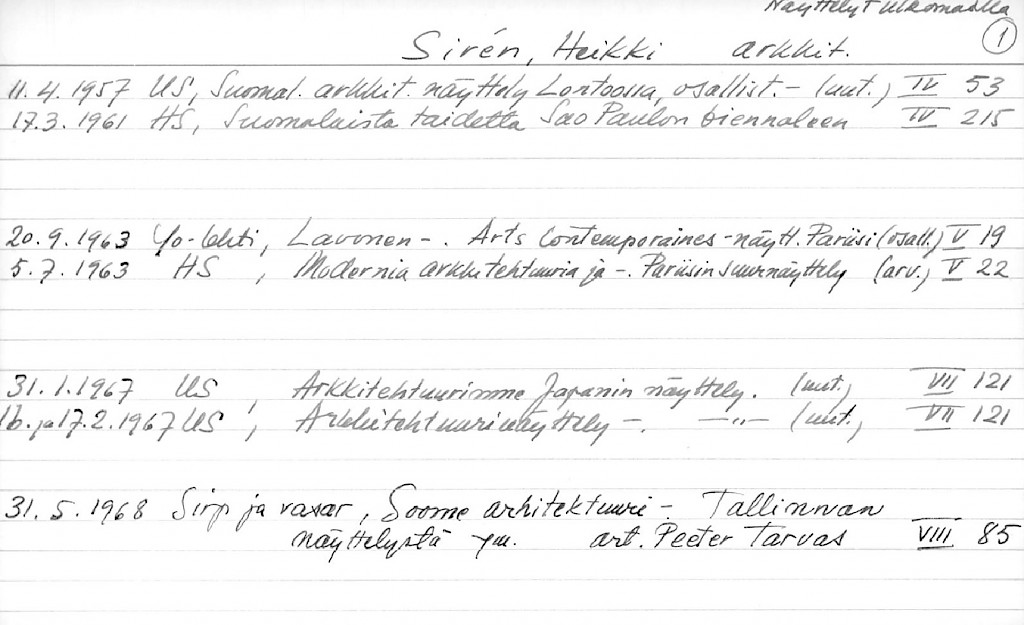 Näyttelyt ulkomailla
1
Sirén, Heikki arkkit.
11.4.1957 US, Suomal. arkkit. näyttely Lontoossa, osallist.- (uut.) IV 53
17.3.1961 HS, Suomalaista taidetta Sao Paulon biennaleen IV 215
20.9.1963 Yo-lehti, Lavonen-. Arts Contemporaines-näytt. Pariisi (osall.) V 19
5.7.1963 HS, Modernia arkkitehtuuria ja -. Pariisin suurnäyttely (arv.) V 22
31.1.1967 US, Arkkitehtuurimme Japanin näyttely. (uut.) VII 121
16. ja 17.2.1967 US, Arkkitehtuurinäyttely -. -"- (uut.) VII 121
31.5.1968 Sirp ja vasar, Soome arhitektuuri - Tallinnan
näyttelystä ym. art. Peeter Tarvas VIII 85